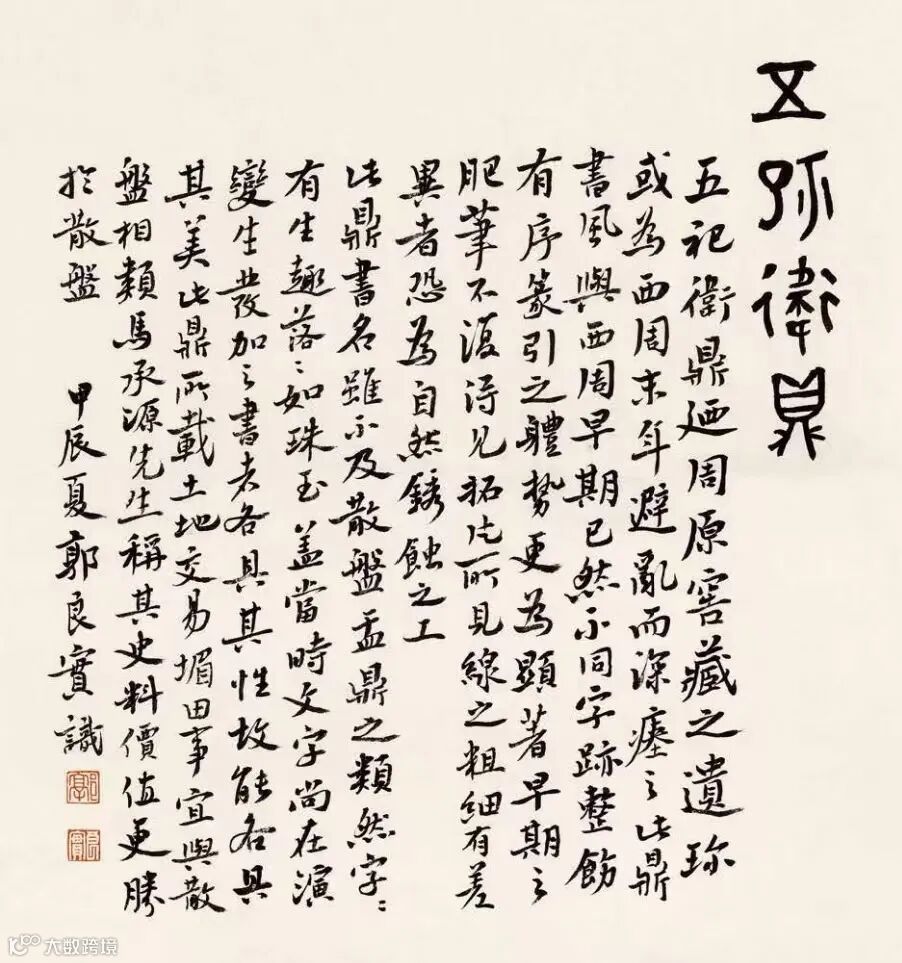 五祀衛鼎
五祀衛鼎廼周原窖藏之遺珎
或為西周末年避亂而深瘞之此鼎
書風與西周早期已然不同字跡整飭
有序篆引之體勢更為顯著早期之
肥筆不復得見拓片所見線之粗細有差
異者恐為自然銹蝕之工
此鼎書名雖不及散盤盂鼎之類然字〻
有生趣落〻如珠玉蓋當時文字尚在演
變生發加之書者各具其性故能各具
其美此鼎所載土地交易堳田事宜與散
盤相類馬承源先生稱其史料價值更勝
於散盤 甲辰夏郭良實識
大数跨境